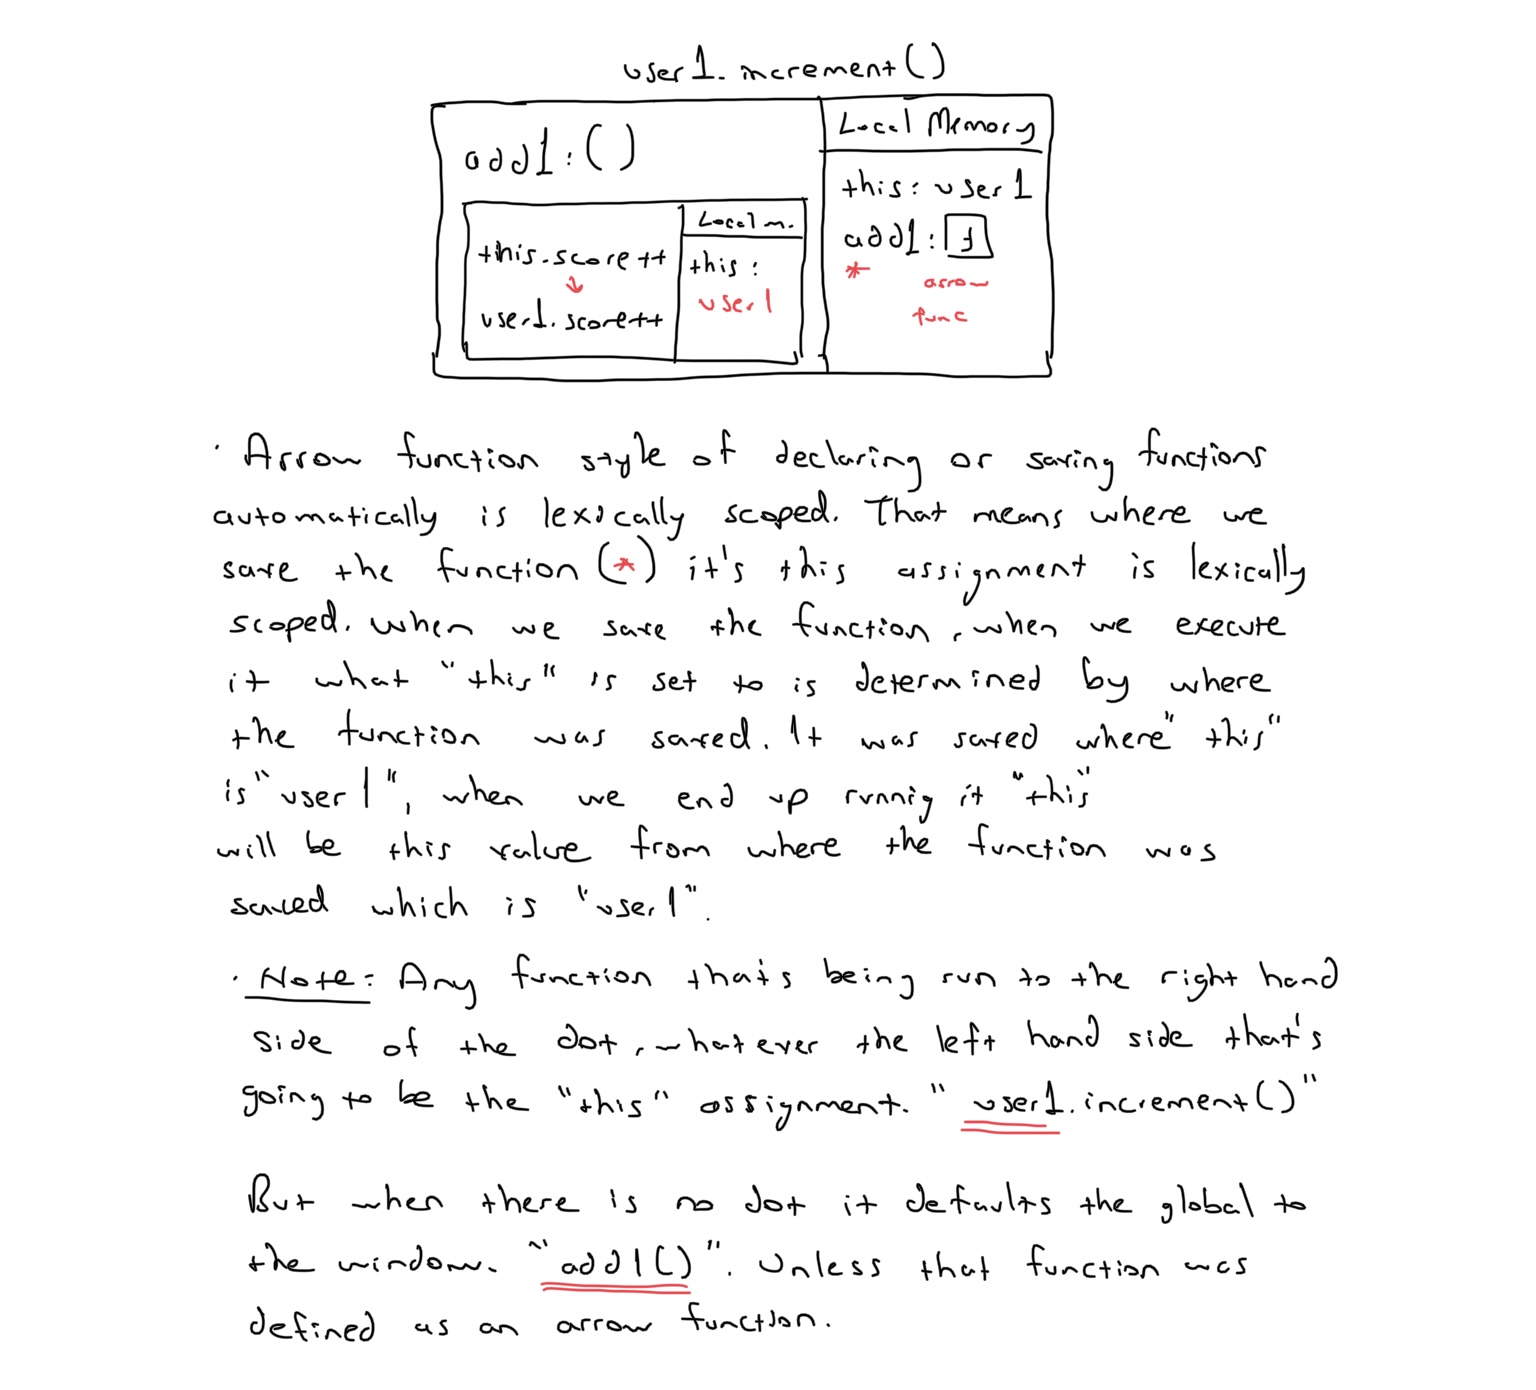 user1.increment()
add1:()
Local Memory
this: user1
add1: f
*
arrow
func
Local m.
this.score++
this:
user1
user1.score++
· Arrow function style of declaring or saving functions
automatically is lexically scoped. That means where we
save the function (*) it's this assignment is lexically
scoped. When we save the function, when we execute
it what "this" is set to is determined by where
the function was saved. It was saved where "this"
is "user1", when we end up runnig it "this"
will be this value from where the function was
saved which is "user1".
· Note: Any function that's being run to the right hand
side of the dot, whatever the left hand side that's
going to be the "this" assignment. "user1.increment()"
But when there is no dot it defaults the global to
the window. "add1()". Unless that function was
defined as an arrow function.